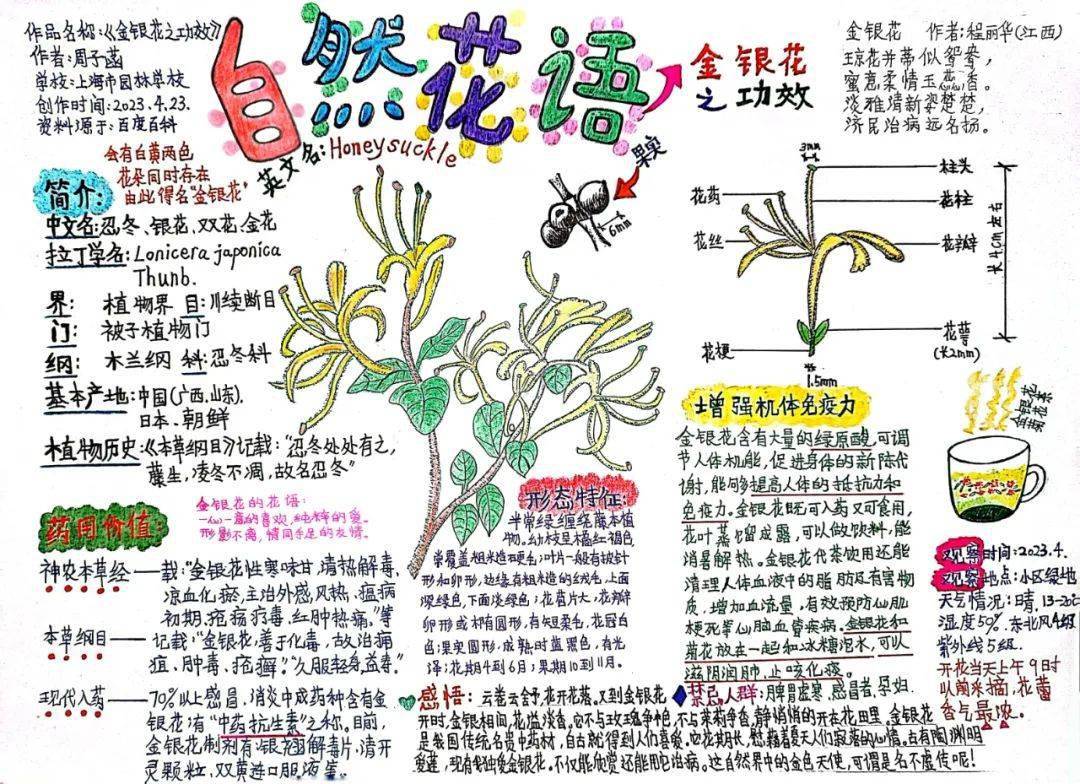 作品名称:《金银花之功效》
作者:周子菡
学校:上海市园林学校
创作时间:2023.4.23.
资料源于:百度百科
自然花语
金银花
之功效
英文名:Honeysuckle
金银花 作者:程丽华(江西)
琼花并蒂似鸳鸯,
蜜意柔情玉蕊香。
淡雅清新姿楚楚,
济民治病远名扬。
会有白黄两色
花朵同时存在
由此得名"金银花"
简介:
中文名:忍冬、银花、双花、金花
拉丁学名:Lonicera japonica
Thunb.
界: 植物界 目:川续断目
门: 被子植物门
纲: 木兰纲 科:忍冬科
基本产地:中国(广西、山东)、
日本、朝鲜
植物历史:《本草纲目》记载:"忍冬处处有之,
藤生,凌冬不凋,故名忍冬"
果实
6mm
3mm
柱头
花药
花柱
花丝
花瓣
长4cm左右
花萼
(长2mm)
花梗
1.5mm
药用价值:
金银花的花语:
一心一意的喜欢,纯粹的爱。
形影不离,情同手足的友情。
神农本草经——载:"金银花性寒味甘,清热解毒、
凉血化瘀,主治外感风热、瘟病
初期、疮疡疔毒、红肿热痛。"等
本草纲目——记载:"金银花,善于化毒,故治痈
疽、肿毒、疮癣。""久服轻身,益寿。"
现代入药——70%以上感冒、消炎中成药种含有金
银花,有"中药抗生素"之称。目前,
金银花制剂有:银翘解毒片,清开
灵颗粒,双黄连口服液等。
形态特征:
半常绿缠绕藤本植
物。幼枝呈橘红褐色
常覆盖粗米造硬毛;叶片一般有披针
形和卵形,边缘有粗米造的绒毛,上面
深绿色,下面淡绿色;花苞片大,花瓣
卵形或椭圆形,有短柔毛,花冠白
色;果实圆形,成熟时蓝黑色,有光
泽;花期4到6月;果期10到11月。
增强机体免疫力
金银花含有大量的绿原酸,可调
节人体机能,促进身体的新陈代
谢,能够提高人体的抵抗力和
免疫力。金银花既可入药又可食用,
花叶蒸馏成露,可以做饮料,能
消暑解热。金银花代茶饮用还能
清理人体血液中的脂肪及有害物
质,增加血流量,有效预防心肌
梗死等心脑血管疾病。金银花和
菊花放在一起和冰糖泡水,可以
滋阴润肺,止咳化痰。
金银花
菊花茶
观察时间:2023.4.
观察地点:小区绿地
天气情况:晴,13-21℃
湿度50%,东北风4级
紫外线5级.
开花当天上午9时
以前采摘,花蕾
香气最浓。
感悟:云卷云舒,花开花落。又到金银花
开时,金银相间,花溢淡香。它不与玫瑰争艳,不与茉莉争香,静悄悄的开在花田里。金银花
是我国传统名贵中药材,自古就得到人们喜爱。它花期长,慰藉着夏天人们寂落的心情。古有陶渊明
爱莲,现有我独爱金银花。不仅能欣赏还能用它治病。这自然界中的金色天使,可谓是名不虚传呢!
禁忌人群:脾胃虚寒、感冒者、孕妇.